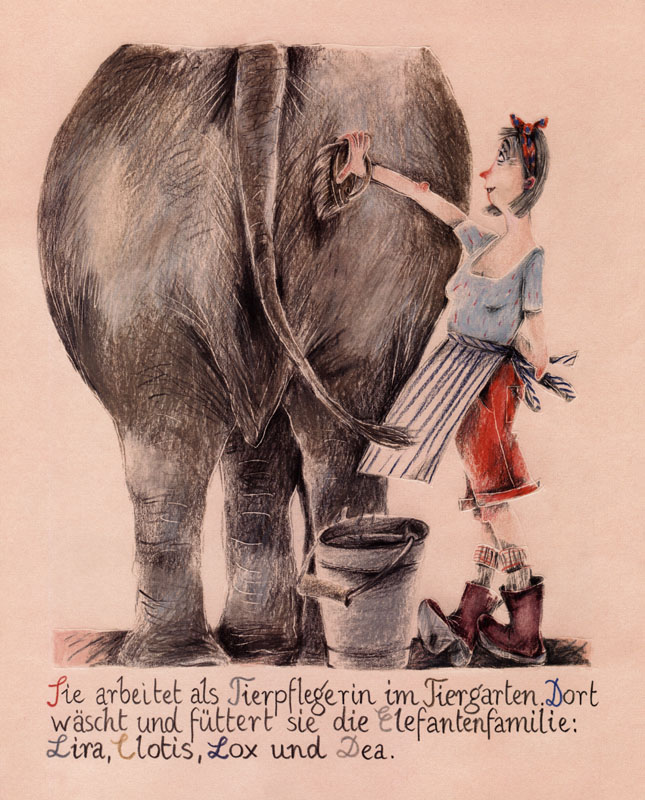 Sie arbeitet als Tierpflegerin im Tiergarten. Dort
wäscht und füttert sie die Elefantenfamilie:
Lira, Clotis, Lox und Dea.